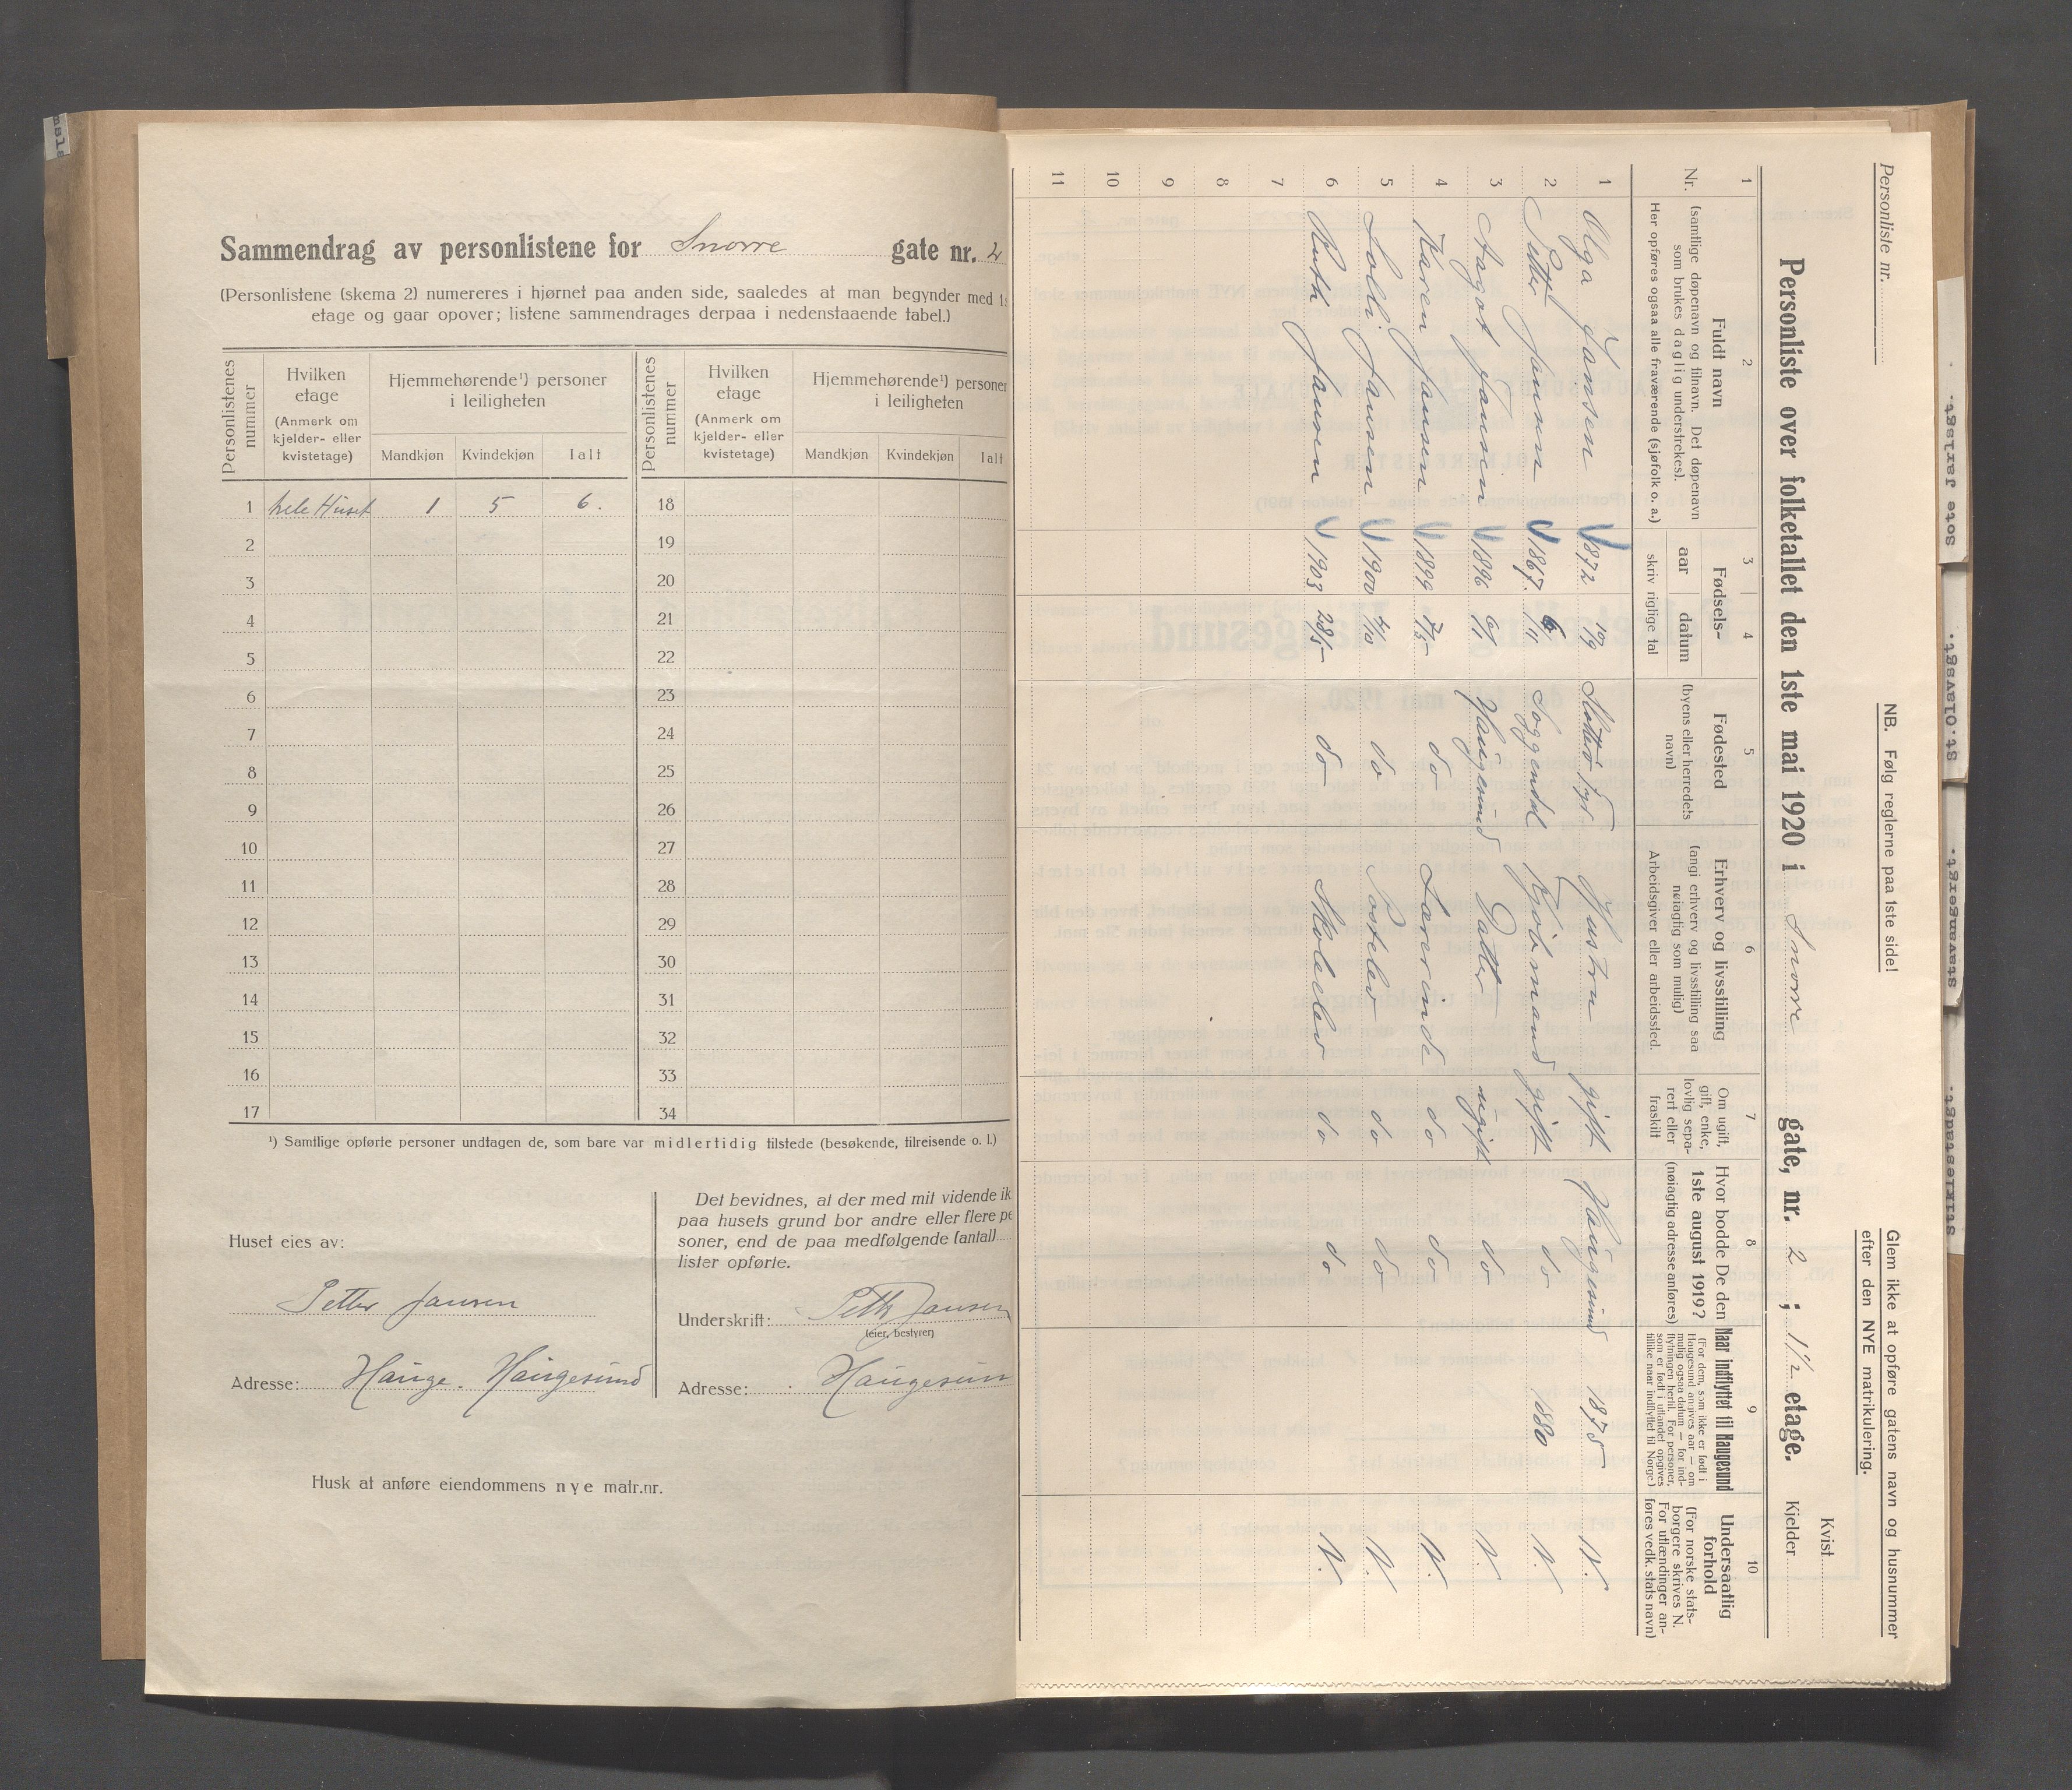 Sammendrag av personlistene for Snorre gate nr. 2
(Personlistene (skema 2) numereres i hjørnet paa anden side, saaledes at man begynder med 1s
etage og gaar opover; listene sammendrages derpaa i nedenstaaende tabel.)
Personlistenes nummer
Hvilken etage
(Anmerk om kjelder- eller kvistetage)
Hjemmehørende¹) personer i leiligheten
Mandkjøn Kvindekjøn Ialt
Personlistenes nummer
Hvilken etage
(Anmerk om kjelder- eller kvistetage)
Hjemmehørende¹) personer i leiligheten
Mandkjøn Kvindekjøn Ialt
1 hele Huset 1 5 6. 18
2 19
3 20
4 21
5 22
6 23
7 24
8 25
9 26
10 27
11 28
12 29
13 30
14 31
15 32
16 33
17 34
¹) Samtlige opførte personer undtagen de, som bare var midlertidig tilstede (besøkende, tilreisende o. l.)
Huset eies av:
Petter Jansen
Adresse: Hauge. Haugesund
Det bevidnes, at der med mit vidende ik
paa husets grund bor andre eller flere pe
soner, end de paa medfølgende (antal)
lister opførte.
Underskrift: Petter Jansen
(eier, bestyrer)
Adresse: Haugesun
Husk at anføre eiendommens nye matr.nr.
Personliste nr.
NB. Følg reglerne paa 1ste side!
Glem ikke at opføre gatens navn og husnummer
efter den NYE matrikulering.
Kvist
Personliste over folketallet den 1ste mai 1920 i Snorre gate, nr. 2 ; 1½ etage.
Kjelder
1 2 3 4 5 6 7 8 9 10
Nr.
Fuldt navn
(samtlige døpenavn og tilnavn. Det døpenavn
som brukes daglig understrekes).
Her opføres ogsaa alle fraværende (sjøfolk o. a.)
Fødsels-
aar datum
skriv rigtige tal
Fødested
(byens eller herredets
navn)
Erhverv og livsstilling
(angi erhverv og livsstilling saa
nøiagtig som mulig)
Arbeidsgiver eller arbeidssted.
Om ugift,
gift, enke,
lovlig sepa-
rert eller
fraskilt
Hvor bodde De den
1ste august 1919?
(nøiagtig adresse anføres)
Naar indflyttet til Haugesund
(For dem, som ikke er født i
Haugesund angives aar — om
mulig ogsaa datum — for ind-
flytningen hertil. For personer,
som er født i utlandet opgives
tillike naar indflyttet til Norge.)
Undersaatlig
forhold
(For norske stats-
borgere skrives N.
For utlændinger an-
føres vedk. stats navn)
1 Olga Jansen 1872 19/9 Hustru gift Haugesund 1875 N.
2 Petter Jansen 1867. 6/11 Soggendal Kjøbmand gift do 1880 N.
3 Aagot Jansen 1896 9/1 Haugesund Datter ugift do N.
4 Karen Jansen 1899 7/5 do Lærerinde do do N.
5 Jansen 1900 4/10 do Postelev do do N.
6 Ruth Jansen 1903 28/5 do Skoleelev do do N.
7
8
9
10
11
Sote Jarlsgt.
St.Olavsgt.
Stavangergt.
Strikjestadgt.